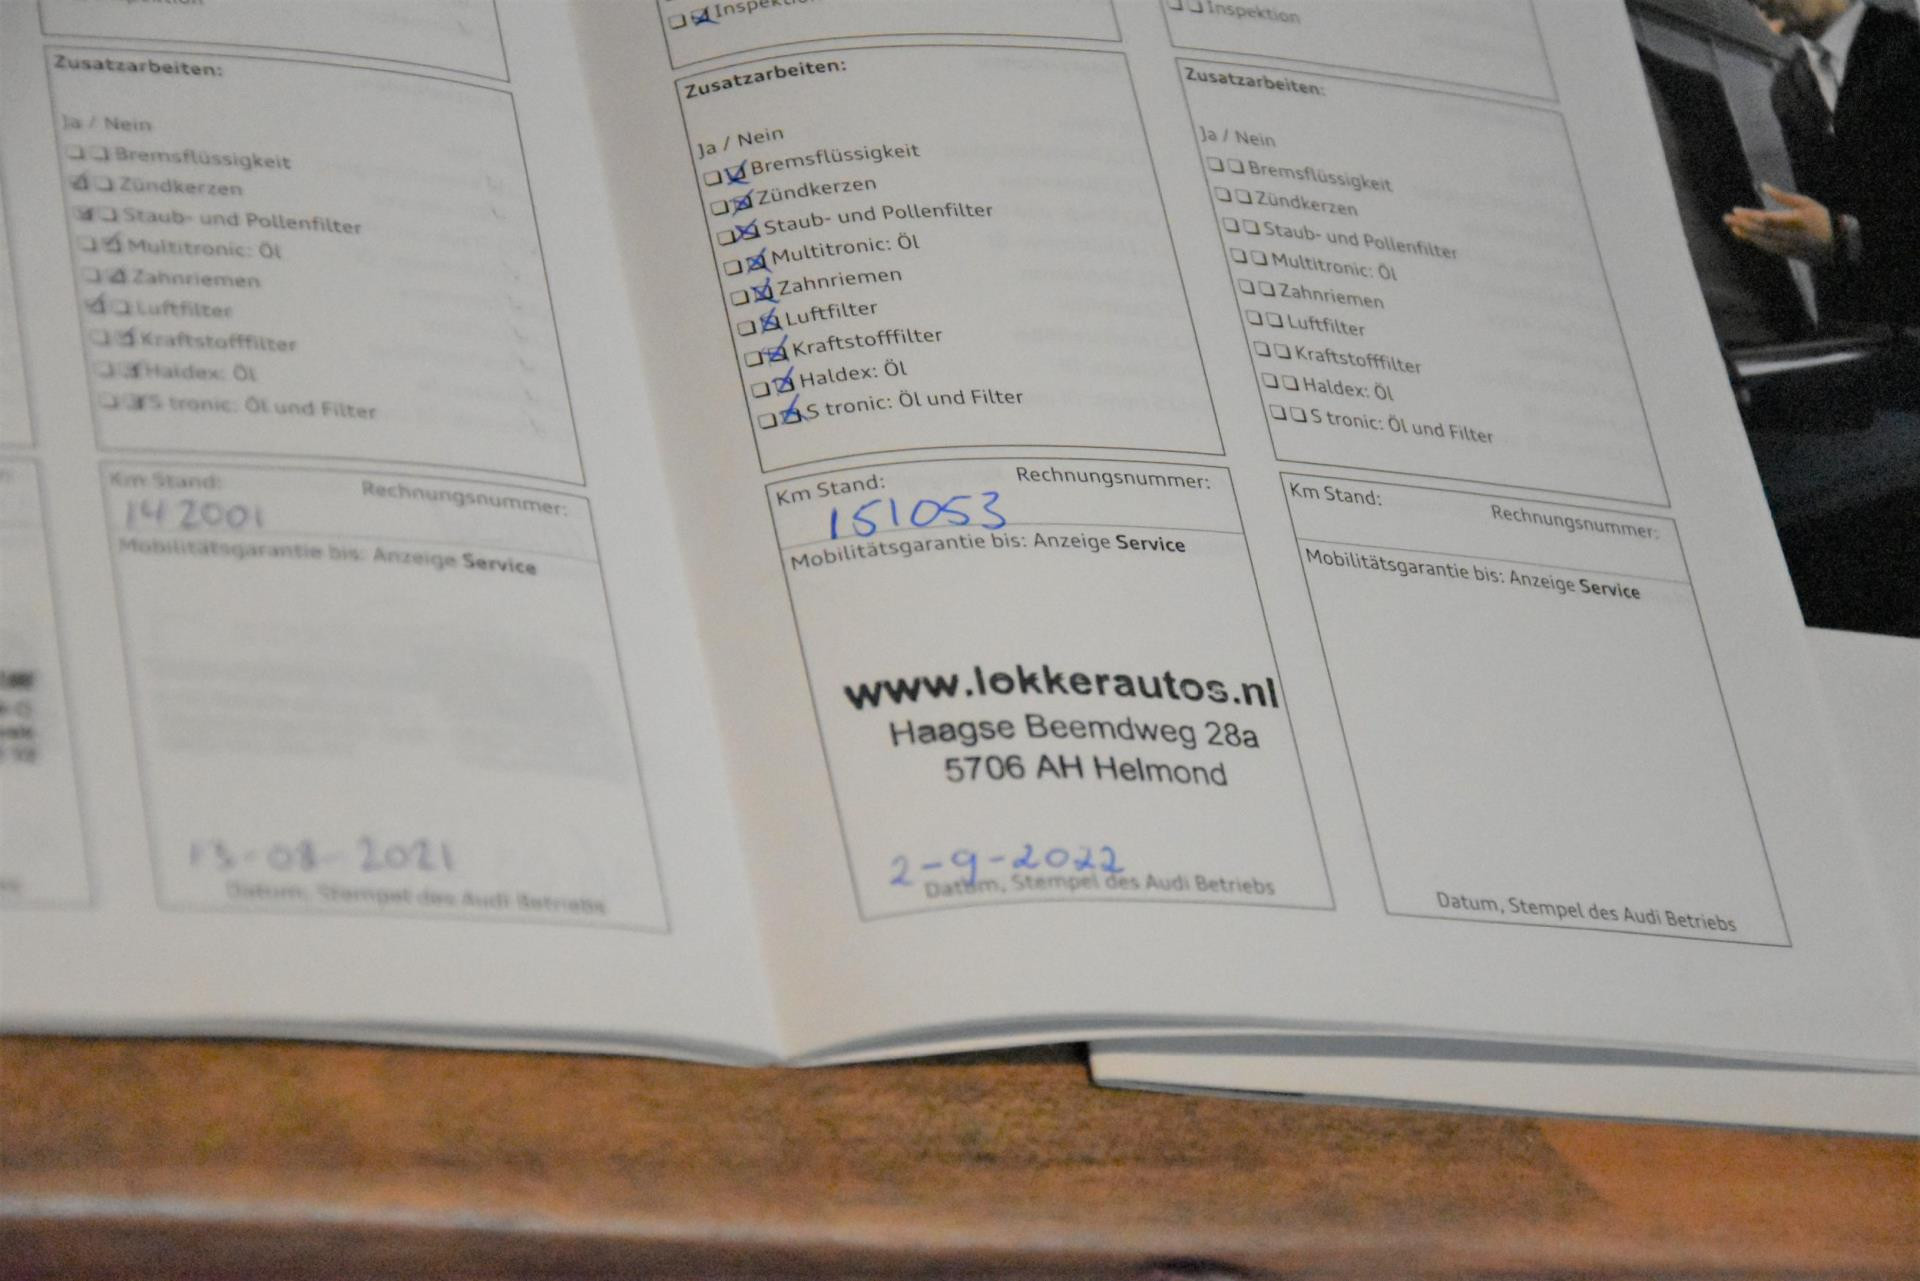 Zusatzarbeiten:
Ja / Nein
Bremsflüssigkeit
Zündkerzen
Staub- und Pollenfilter
Multitronic: Öl
Zahnriemen
Luftfilter
Kraftstofffilter
Haldex: Öl
S tronic: Öl und Filter
Km Stand: Rechnungsnummer:
142001
Mobilitätsgarantie bis: Anzeige Service
13-08-2021
Datum, Stempel des Audi Betriebs
Inspektion
Zusatzarbeiten:
Ja / Nein
Bremsflüssigkeit
Zündkerzen
Staub- und Pollenfilter
Multitronic: Öl
Zahnriemen
Luftfilter
Kraftstofffilter
Haldex: Öl
S tronic: Öl und Filter
Km Stand: Rechnungsnummer:
151053
Mobilitätsgarantie bis: Anzeige Service
www.lokkerautos.nl
Haagse Beemdweg 28a
5706 AH Helmond
2-9-2022
Datum, Stempel des Audi Betriebs
Inspektion
Zusatzarbeiten:
Ja / Nein
Bremsflüssigkeit
Zündkerzen
Staub- und Pollenfilter
Multitronic: Öl
Zahnriemen
Luftfilter
Kraftstofffilter
Haldex: Öl
S tronic: Öl und Filter
Km Stand: Rechnungsnummer:
Mobilitätsgarantie bis: Anzeige Service
Datum, Stempel des Audi Betriebs